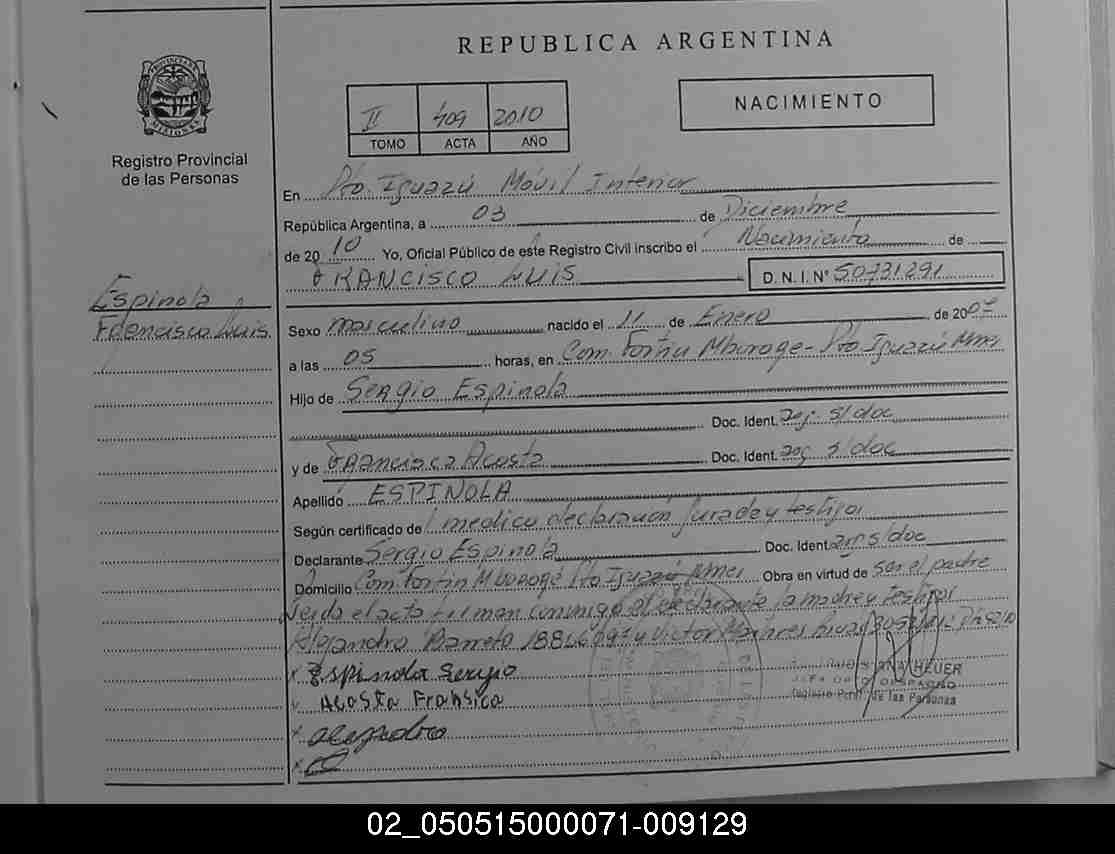 REPUBLICA ARGENTINA
PROVINCIA DE MISIONES
Registro Provincial
de las Personas
II 409 2010
TOMO ACTA AÑO
NACIMIENTO
En Pto. Iguazú Móvil Interior
República Argentina, a 03 de Diciembre
de 2010 Yo, Oficial Público de este Registro Civil inscribo el Nacimiento de
FRANCISCO LUIS D.N.I. Nº 50731291
Espinola
Francisco Luis
Sexo masculino nacido el 11 de Enero de 2007
a las 05 horas, en Com. Fortin Mborore - Pto Iguazú Mnes
Hijo de Sergio Espinola
Doc. Ident. arg. s/doc
y de Francisca Acosta Doc. Ident. arg s/doc
Apellido ESPINOLA
Según certificado de medico declaración Jurada y testigos
Declarante Sergio Espinola Doc. Ident. arg s/doc
Domicilio Com. Fortin Mborore Pto Iguazú Mnes Obra en virtud de ser el padre
Leida el acta firman conmigo el declarante la madre y testigos
Alejandro Barreto y Victor
Espinola Sergio
Acosta Fransica
alejandro
HEUER
JEFA DPTO DESPACHO
Registro Pcial. de las Personas
02_050515000071-009129